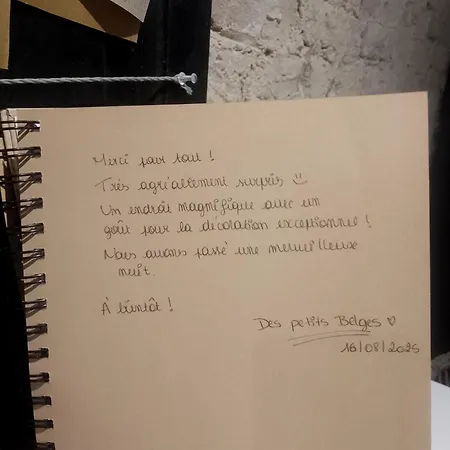 Merci pour tout !
Très agréablement surpris
Un endroit magnifique avec un
goût pour la décoration exceptionnel !
Nous avons passé une merveilleuse
nuit.
À bientôt !
Des petits Belges ♡
16/08/2025